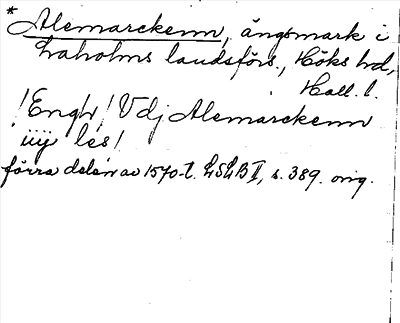 *Alemarckenn, ängsmark i
Laholms landsförs., Höks hd,
Hall. l.
/Engh/ Vdj Alemarckenn
iiij les/
förra delen av 1570-t. LSLB II, s. 389. orig.